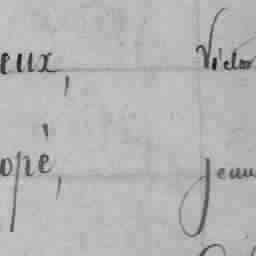 eux, Victor
opé, Jean